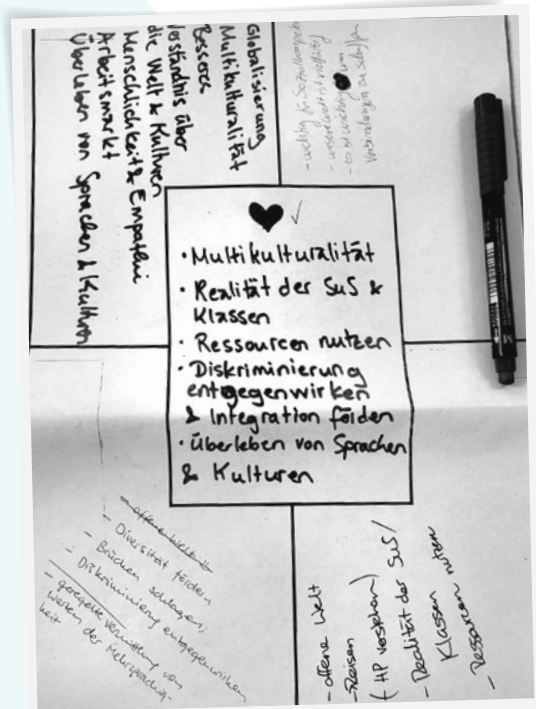 Globalisierung
Multikulturalität
Besseres
Verständnis über
die Welt & Kulturen
Menschlichkeit & Empathie
Arbeitsmarkt
Überleben von Sprachen & Kulturen
- wichtig für Sozialkompetenz
- unsere Welt ist vielfältig
- es ist wichtig um
Verbindungen zu schaffen
• Multikulturalität
• Realität der SuS &
Klassen
• Ressourcen nutzen
• Diskriminierung
entgegenwirken
& Integration förden
• Überleben von Sprachen
& Kulturen
- offene Welt
- Diversität fördern
- Brücken schlagen,
- Diskriminierung entgegenwirken
- geregelte Vermittlung von
Werten der Mehrsprachig-
keit
- offene Welt
- Reisen
(HP verstehen)
- Realität der SuS /
Klassen
- Ressourcen nutzen